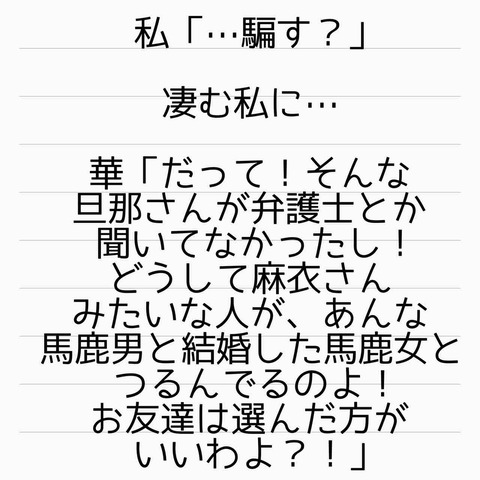 私「…騙す？」
凄む私に…
華「だって！そんな
旦那さんが弁護士とか
聞いてなかったし！
どうして麻衣さん
みたいな人が、あんな
馬鹿男と結婚した馬鹿女と
つるんでるのよ！
お友達は選んだ方が
いいわよ？！」